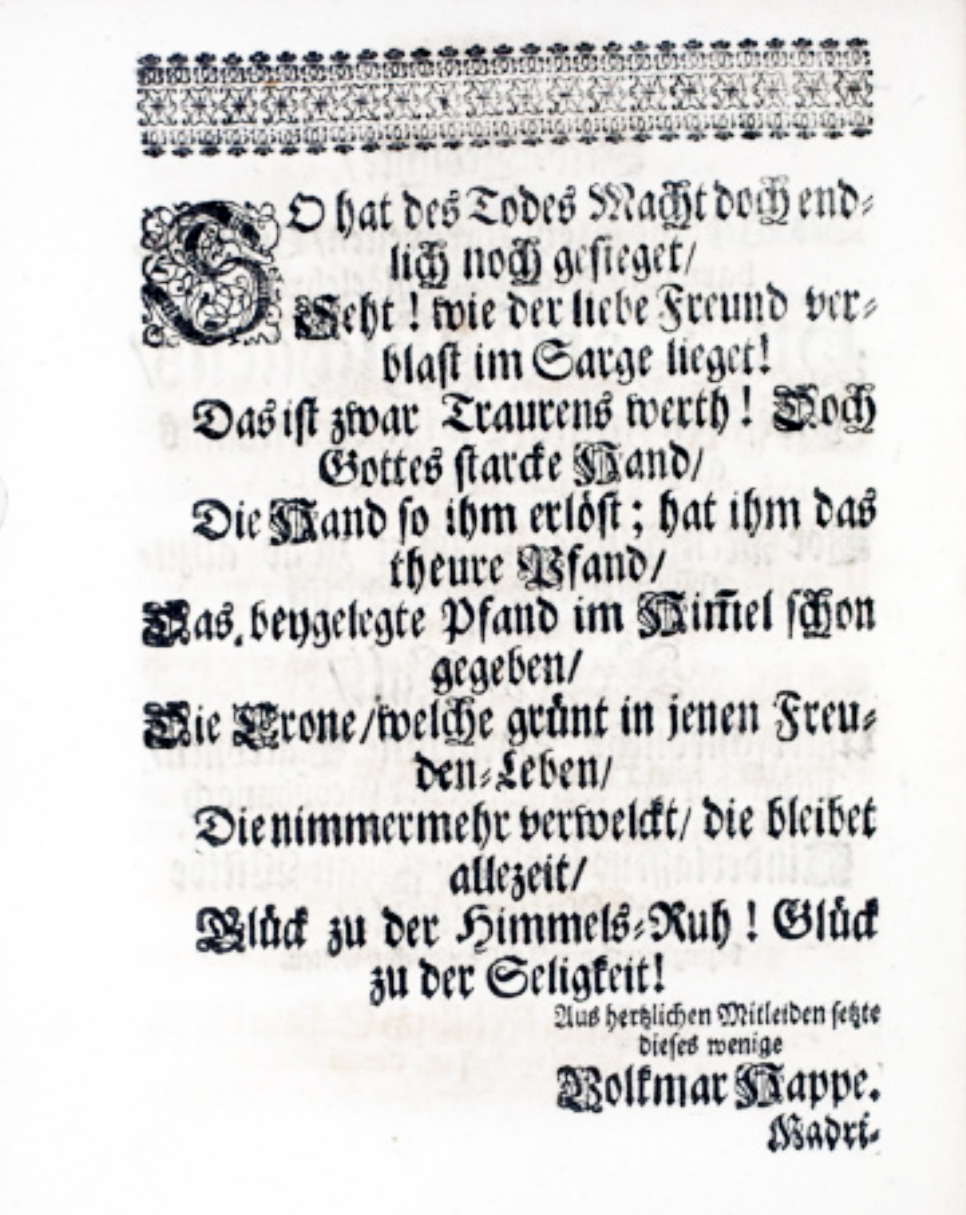 SO hat des Todes Macht doch end⸗
lich noch gesieget/
Seht ! wie der liebe Freund ver⸗
blast im Sarge lieget!
Das ist zwar Traurens werth ! Doch
Gottes starcke Hand/
Die Hand so ihm erlöst ; hat ihm das
theure Pfand/
Das beygelegte Pfand im Him̃el schon
gegeben/
Die Crone/welche grünt in jenen Freu⸗
den⸗Leben/
Die nimmermehr verwelckt/ die bleibet
allezeit/
Glück zu der Himmels⸗Ruh ! Glück
zu der Seligkeit!
Aus hertzlichen Mitleiden setzte
dieses wenige
Volkmar Happe.
Madri⸗